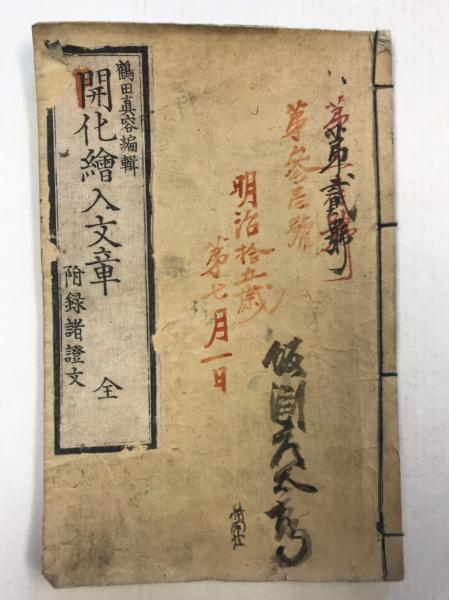 第壹貳號
第參壱號
明治拾五歳
第七月一日
鶴田真容編輯
開化繪入文章
附録諸證文
全